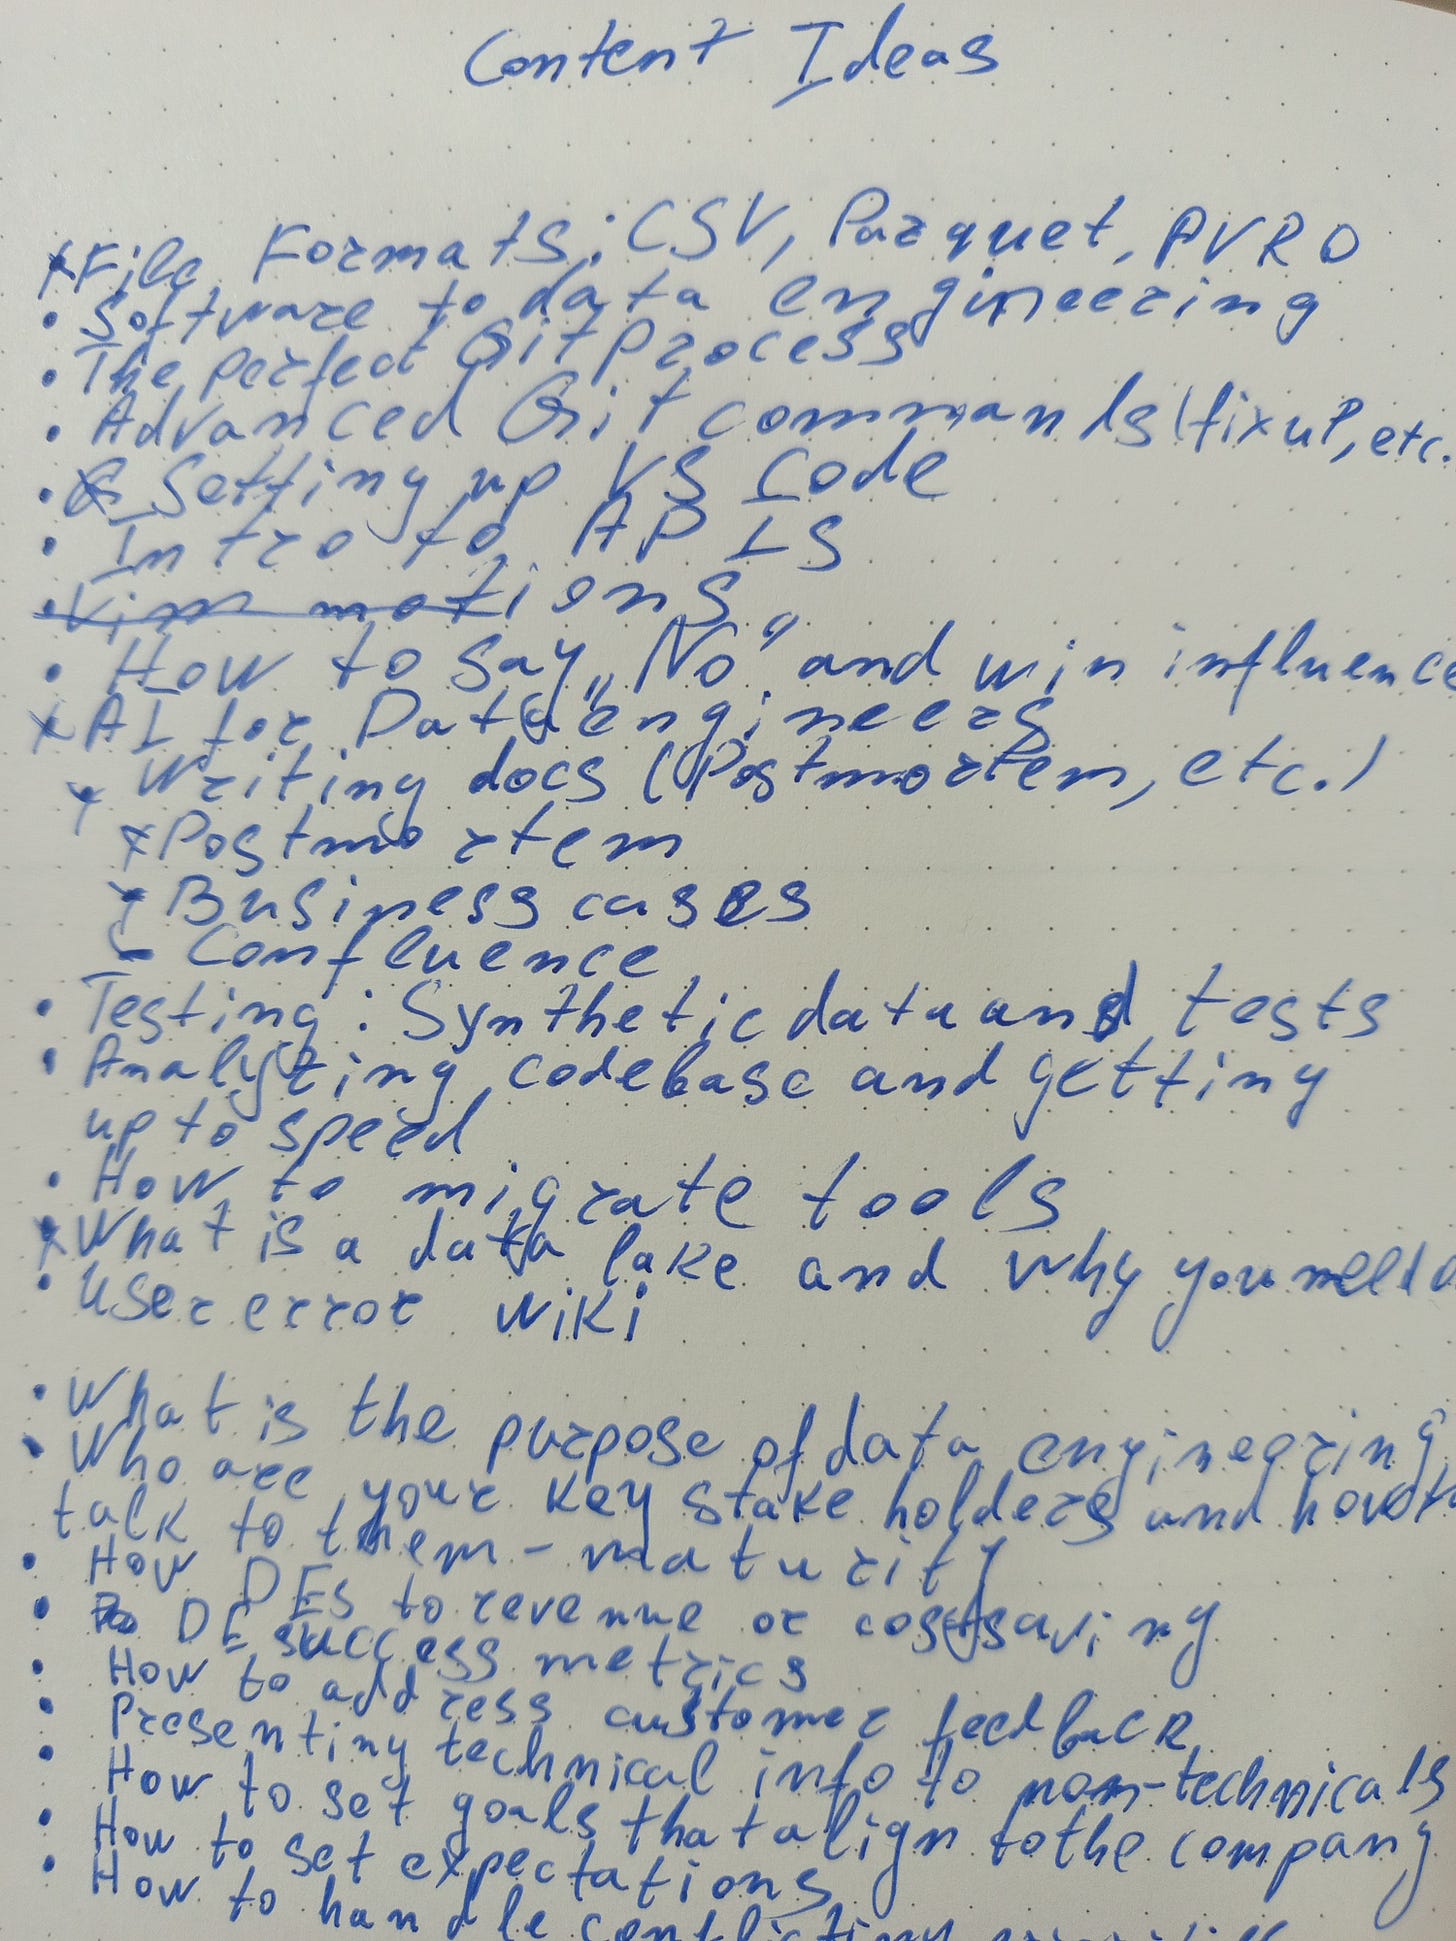 Content Ideas
x File Formats: CSV, Parquet, AVRO
• Software to data engineering
• The perfect Git process
• Advanced Git commands (fixup, etc.
• Setting up VS Code
• Intro to APIs
• Vim motions
• How to say „No" and win influence
x AI for Data engineers
x Writing docs (Postmortem, etc.)
x Postmortem
x Business cases
- Confluence
• Testing: Synthetic data and tests
• Analyzing codebase and getting
up to speed
• How to migrate tools
x What is a data lake and why you need a
• User error wiki
• What is the purpose of data engineering
• Who are your key stake holders and how to
talk to them - maturity
• How DEs to revenue or cost saving
• DE success metrics
• How to address customer feedback
• Presenting technical info to non-technicals
• How to set goals that align to the company
• How to set expectations
• How to handle conflicting